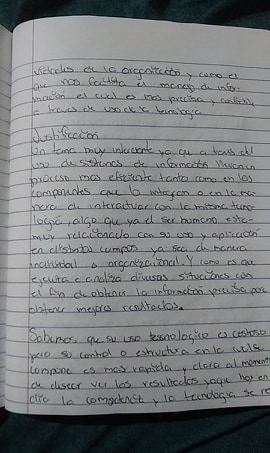 de la organización y como el
que nos facilita el manejo de infor-
mación el cual es mas precisa y confiable
a traves de uso de la tecnologia
Justificación
Un tema muy interesante ya que a traves del
uso de sistemas de información llevan un
proceso mas eficiente tanto como en los
componentes que lo integran o en la ma-
nera de interactuar con la misma tecno-
logia, algo que ya el ser humano esta
muy relacionado con su uso y aplicación
en distintos campos ya sea de manera
individual o organizacional. Y como es que
ejecuta e analiza diversas situaciones con
el fin de obtener la información precisa para
obtener mejores resultados.
Sabemos que su uso tecnologico es costoso
pero su control o estructura en la cual se
compone es mas rapida y clara al momento
de desear ver los resultados, ya que hoy en
dia la competencia y la tecnologia se re